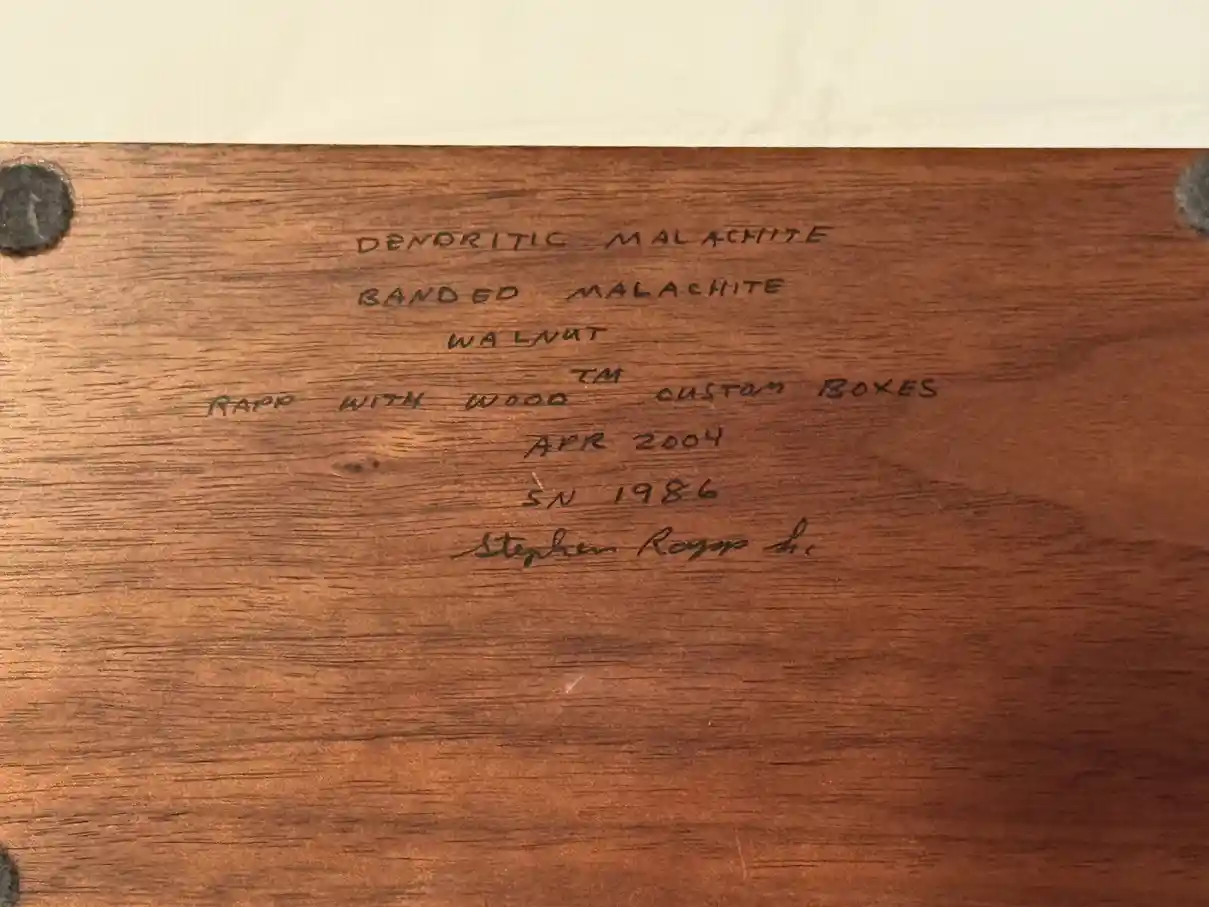 DENDRITIC MALACHITE
BANDED MALACHITE
WALNUT
RAPP WITH WOOD™ CUSTOM BOXES
APR 2004
SN 1986
Stephen Rapp Sr.